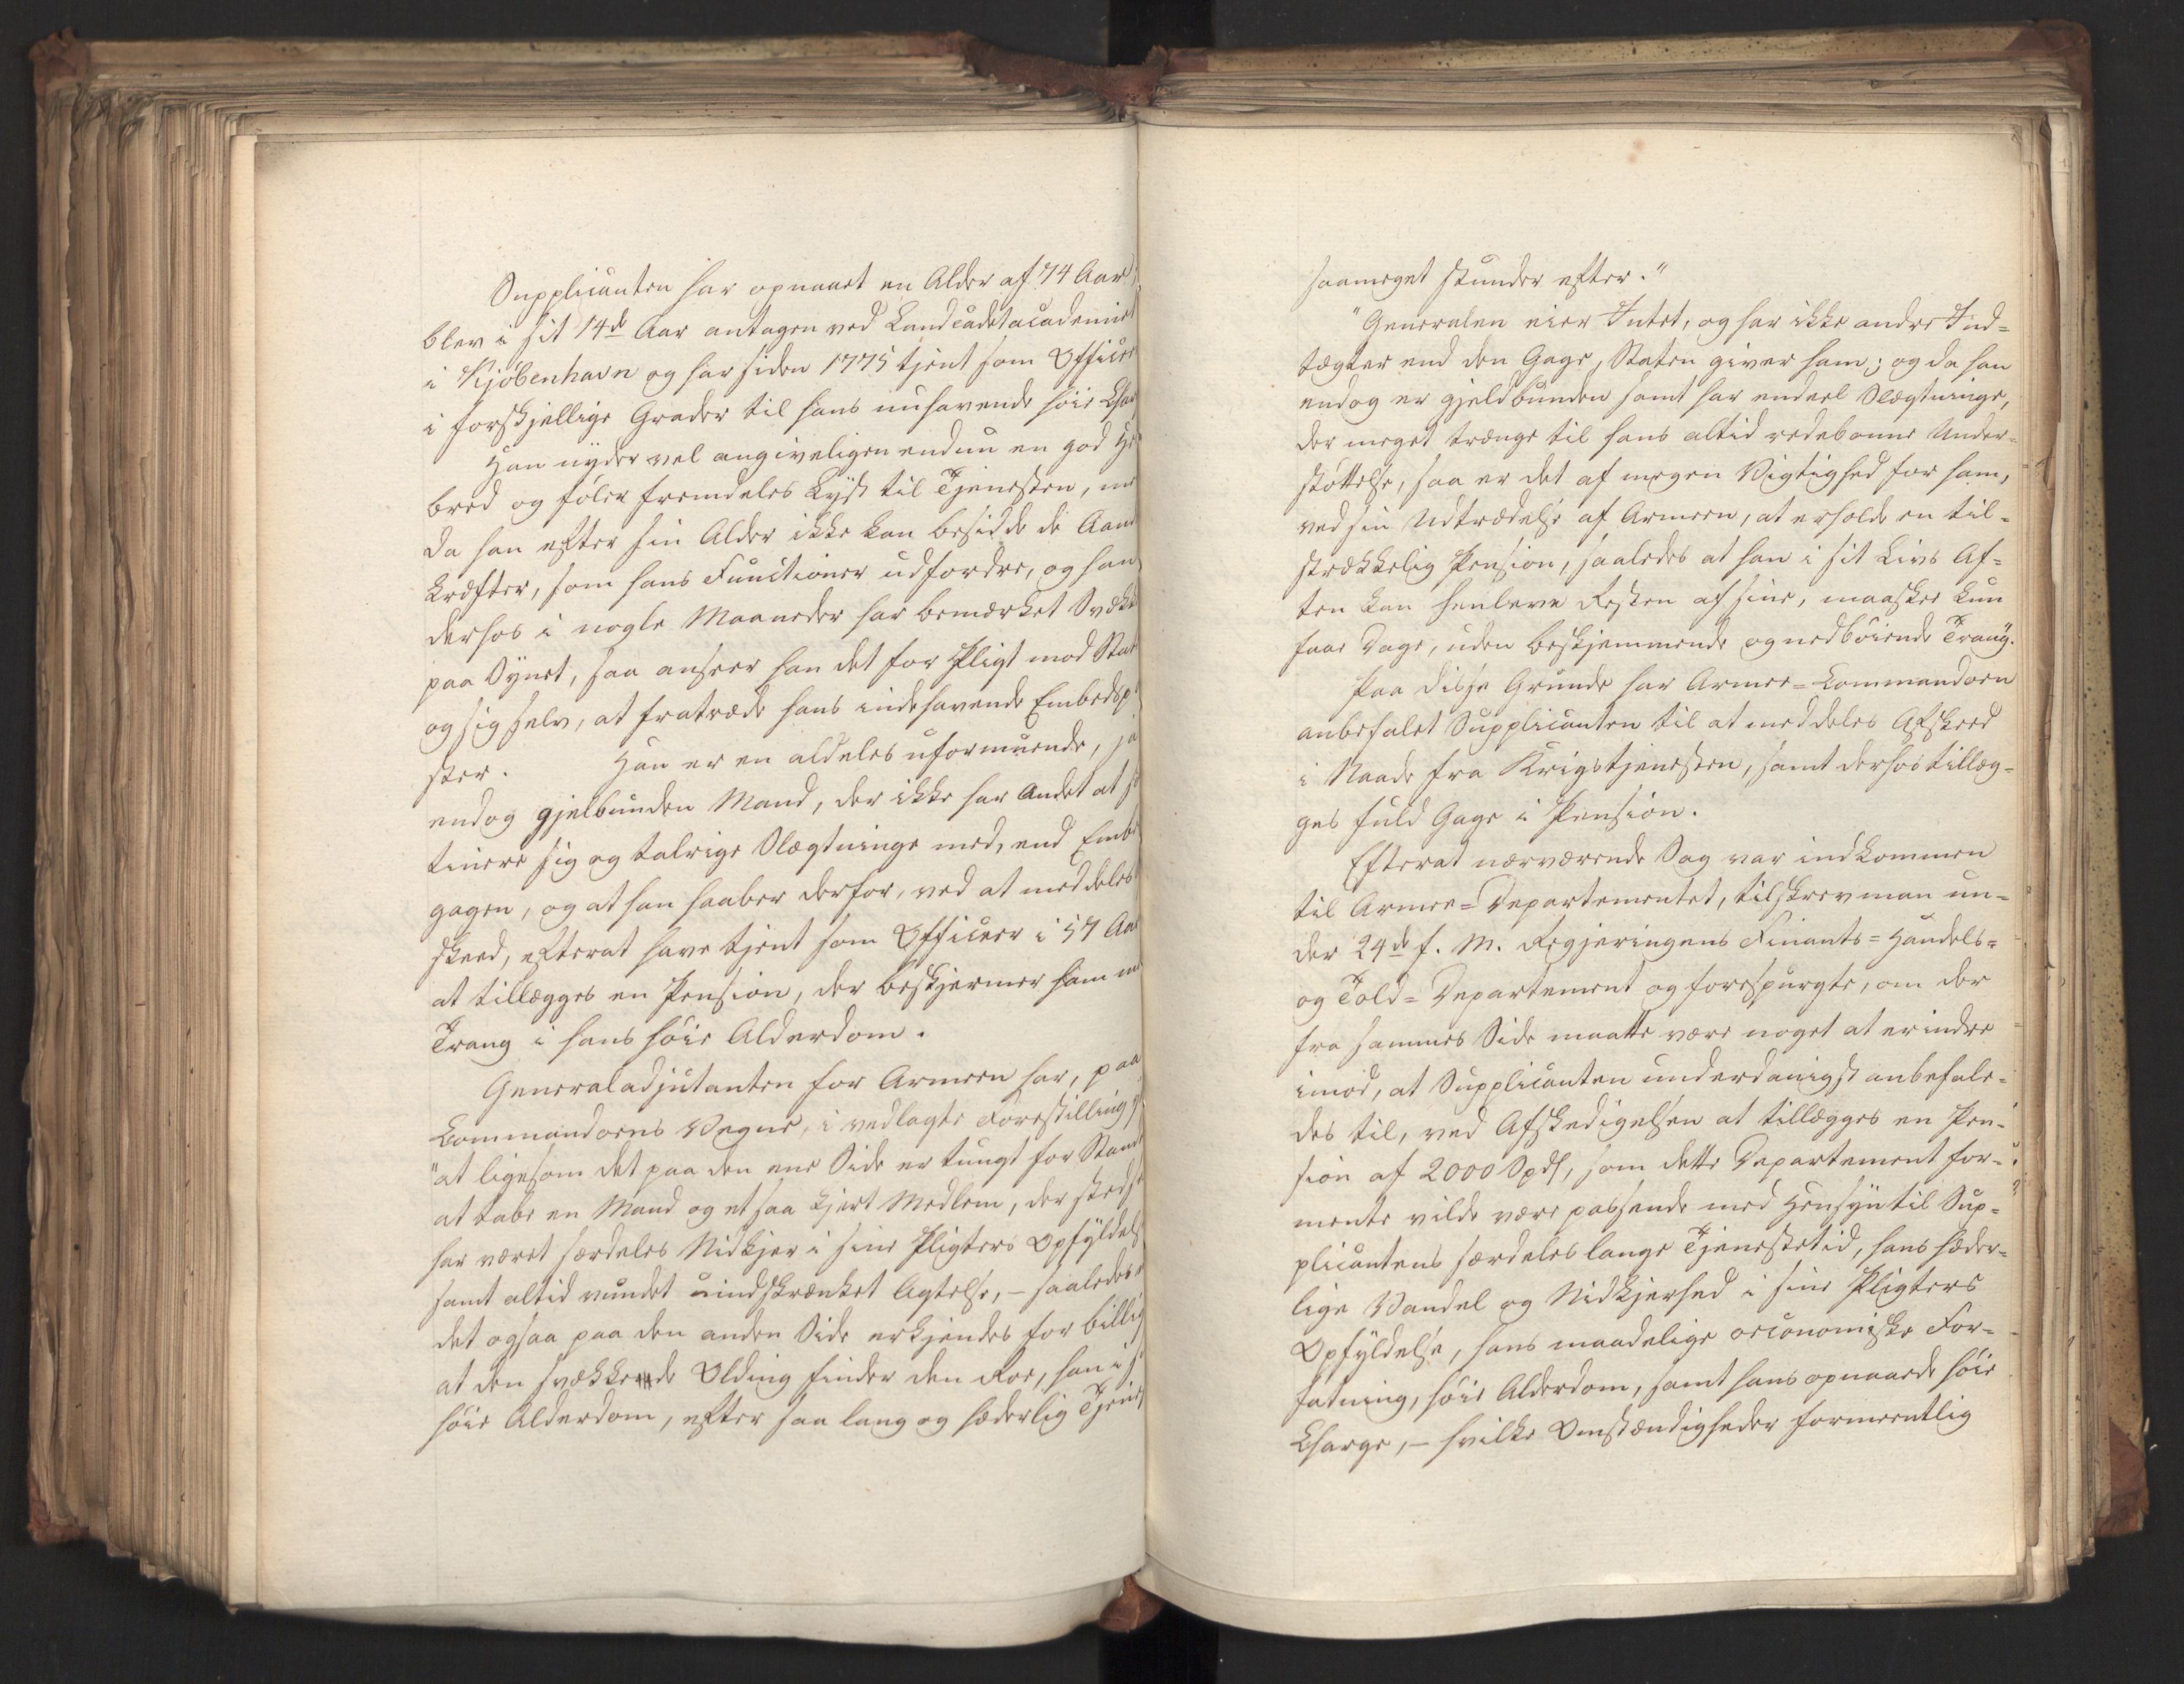 Supplicanten har opnaaet en Alder af 74 Aar,
blev i sit 14de Aar antagen ved Landcadetacademiet
i Kjöbenhavn og har siden 1775 tjent som Officer
i forskjellige Grader til hans nuhavende høie Char
Han nyder vel angiveligen endnu en god He
bred og føler fremdeles Lyst til Tjenesten, me
da han efter sin Alder ikke kan besidde de Aand
kræfter, som hans Functioner udfordre, og han
derhos i nogle Maaneder har bemærket Svække
paa Synet, saa anseer han det for Pligt mod Stat
og sig selv, at fratræde hans indehavende Embedsp
ster. Han er en aldeles uformuende, ja
endog gjelbunden Mand, der ikke har Andet at s
tinere sig og talrige Slægtninge med, end Embe
gagen, og at han haaber derfor, ved at meddeles
skeed, efterat have tjent som Officeer i 57 Aar
at tillægges en Pension, der beskjermer ham m
Trang i hans høie Alderdom.
Generaladjutanten for Armeen har, paa
Commandoens Vegne, i vedlagte Forestilling
"at ligesom det paa den ene Side er tungt for Stand
at tabe en Mand og et saa kjert Medlem, der stedse
har været særdeles Nidkjer i sine Pligters Opfyldels
samt altid vundet uindskrænket Agtelse, – saaledes
det ogsaa paa den anden Side erkjendes for billig
at den svækkede Olding finder den Roe, han i s
høie Alderdom, efter saa lang og hæderlig Tjenes
saameget stunder efter."
"Generalen eier Intet, og har ikke andre Ind=
tægter end den Gage, Staten giver ham; og da han
endog er gjeldbunden samt har endeel Slægtninge,
der meget trænge til hans altid redebonne Under=
støttelse, saa er det af megen Vigtighed for ham,
ved sin Udtrædelse af Armeen, at erholde en til=
strækkelig Pension, saaledes at han i sit Livs Af=
ten kan henleve Resten af sine, maaskee kun
faae Dage, uden beskjemmende og nedböiende Trang.
Paa disse Grunde har Armee=Commandoen
anbefalet Supplicanten til at meddeles Afskeed
i Naade fra Krigstjenesten, samt derhos tillæg=
ges fuld Gage i Pension.
Efterat nærværende Sag var indkommen
til Armee=Departementet, tilskrev man un=
der 24de f. M. Regjeringens Finants= Handels=
og Told=Departement og forespurgte, om der
fra sammes Side maatte være noget at erindre
imod, at Supplicanten underdanigst anbefale=
des til, ved Afskedigelsen at tillægges en Pen=
sion af 2000 Spd, som dette Departement for=
mente vilde være passende med Hensyn til Sup=
plicantens særdeles lange Tjenestetid, hans hæder=
lige Vandel og Nidkjerhed i sine Pligters
Opfyldelse, hans maadelige oeconomiske For=
fatning, høie Alderdom, samt hans opnaaede høie
Charge, – hvilke Omstændigheder formeentlig